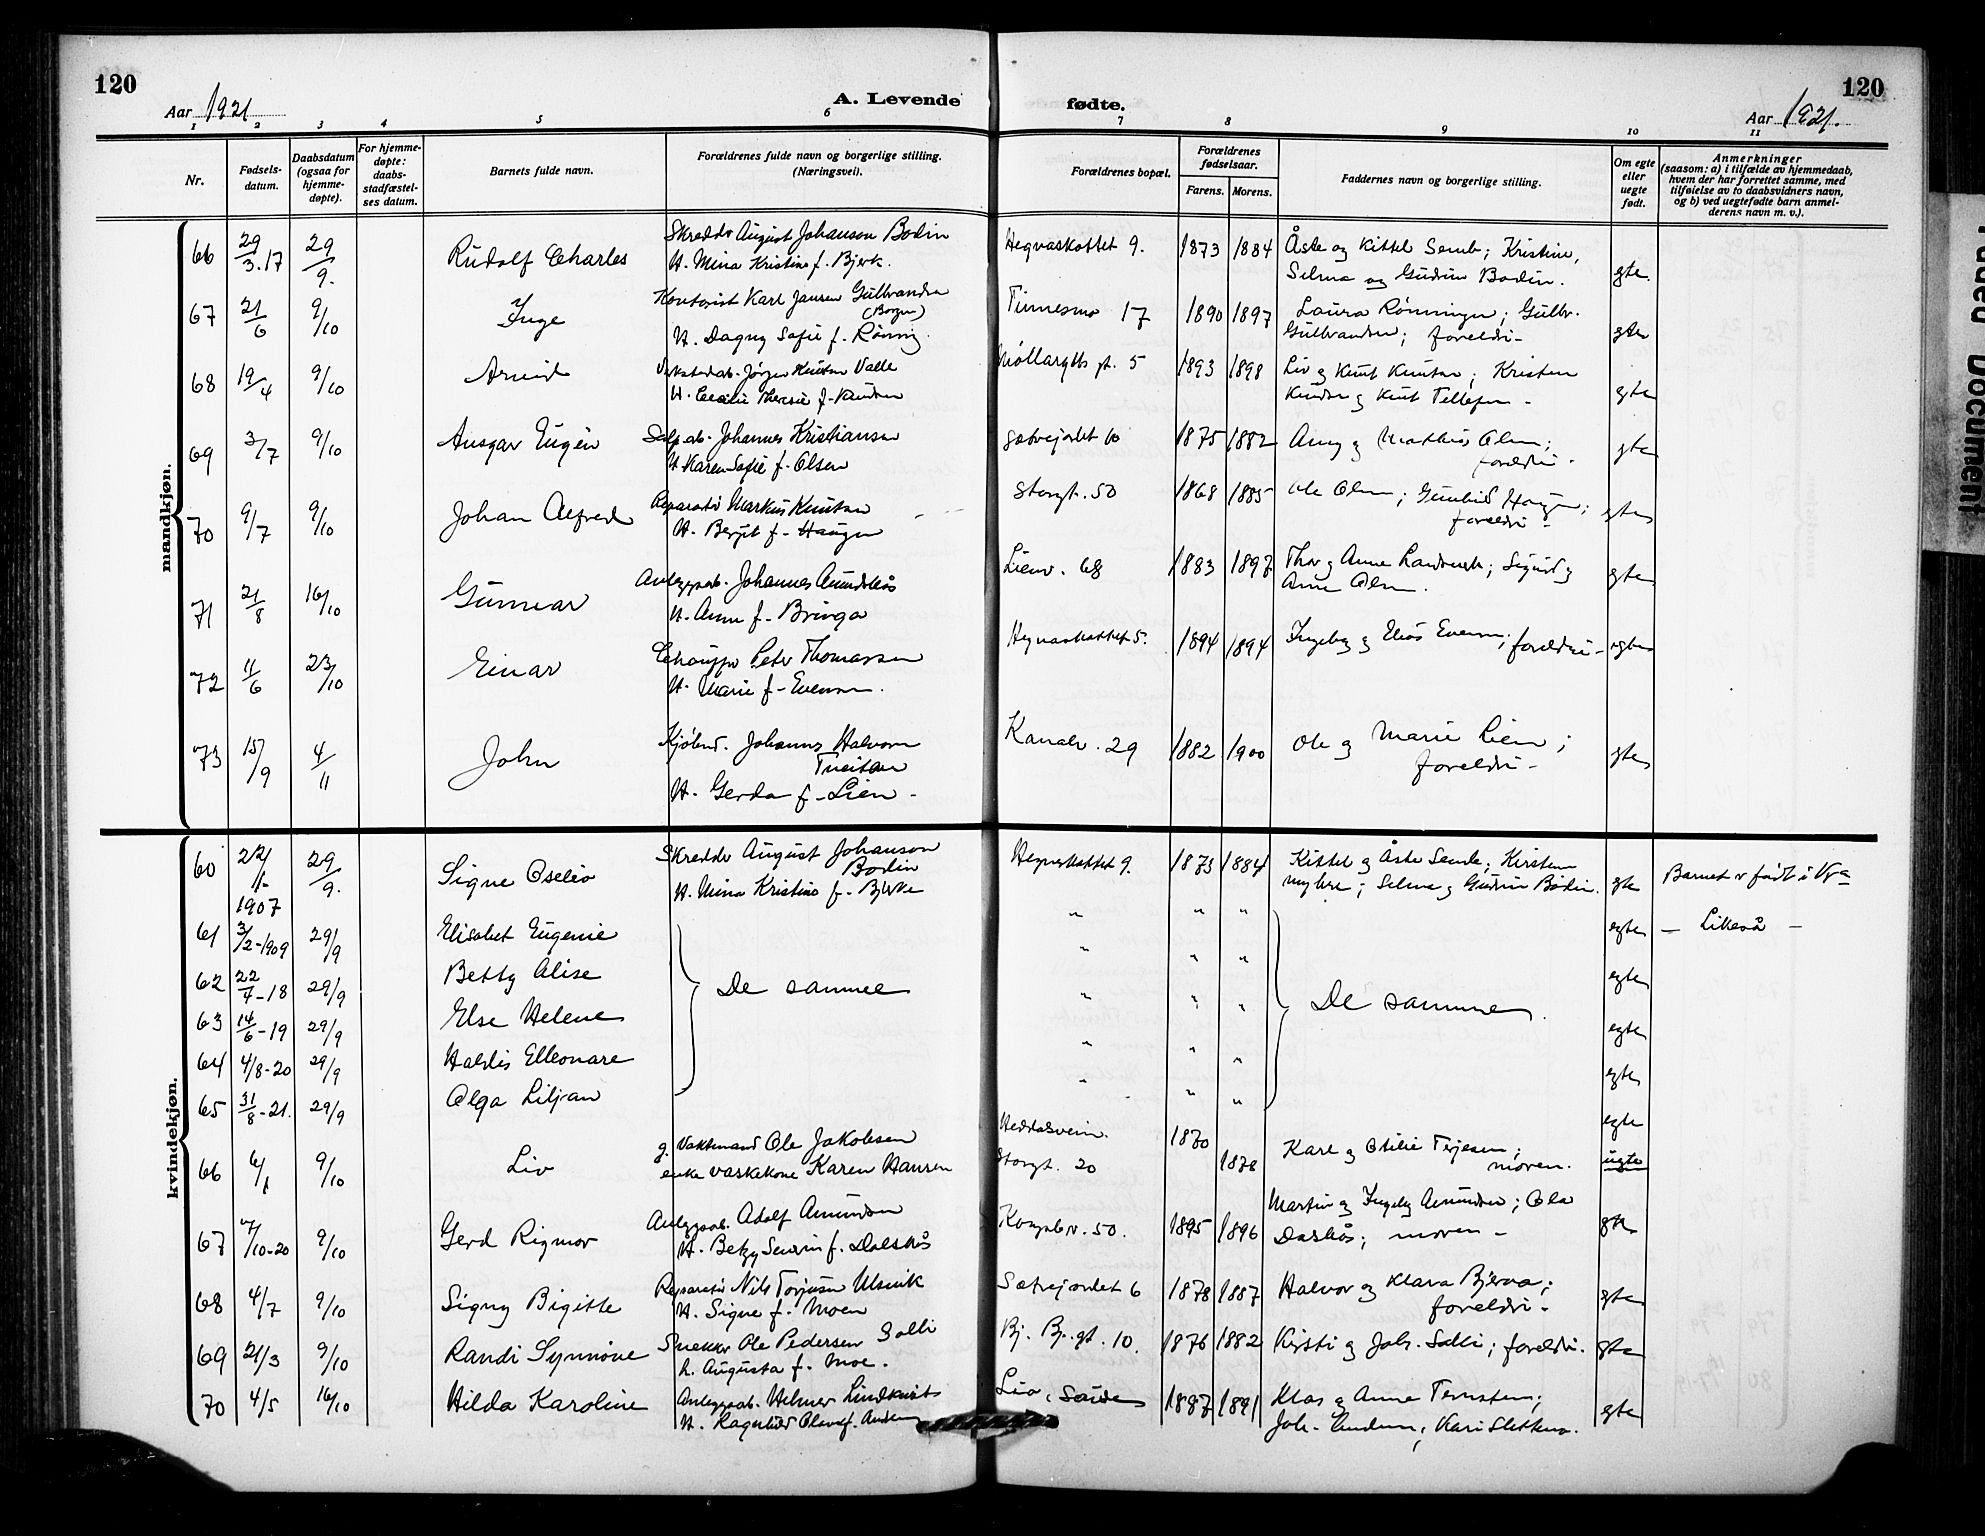 120
Aar 1921
A. Levende
fødte.
120
Aar 1921.
1 2 3 4 5 6 7 8 9 10 11
Nr.
Fødsels-
datum.
Daabsdatum
(ogsaa for
hjemme-
døpte).
For hjemme-
døpte:
daabs-
stadfæstel-
ses datum.
Barnets fulde navn.
Forældrenes fulde navn og borgerlige stilling.
(Næringsvei).
Forældrenes bopæl.
Forældrenes
fødselsaar.
Farens. Morens.
Faddernes navn og borgerlige stilling.
Om egte
eller
uegte
født.
Anmerkninger
(saasom: a) i tilfælde av hjemmedaab,
hvem der har forrettet samme, med
tilføielse av to daabsvidners navn,
og b) ved uegtefødte barn anmel-
derens navn m. v.).
mandkjøn.
66 29/3.17 29/9. Rudolf Charles Skredder August Johanson Bodin Hegnaskottet 9. 1873 1884 Åste og Kittel Semb; Kristine,
H. Mina Kristine f. Bjerk. Selma og Gudrun Bodin. egte.
67 21/6 9/10 Inge Kontorist Karl Jansen Gulbrandsen Tinnesmo 17 1890 1897 Laura Rønningen; Gulbr.
(Borgen)
H. Dagny Sofie f. Rønning. Gulbrandsen; foreldre - egte
68 19/4 9/10 Arvid Verkstedab. Jørgen Knutsen Valle Møllargts gt. 5 1893 1898 Liv og Knut Knutsen; Kristen
H. Cecilie Therese f. Knudsen Knudsen og Knut Tellefsen - egte
69 3/7 9/10 Ansgar Eugén Salp.ab. Johannes Kristiansen Sætrejordet 10 1875 1882 Anny og Mathias Olsen;
H. Karen Sofie f. Olsen foreldre - egte
70 9/7 9/10 Johan Alfred Reparatør Markus Knutsen Storgt. 50 1868 1885 Ole Olsen; Gunhild Haugen;
H. Bergit f. Haugen foreldre - egte
71 21/8 16/10 Gunnar Anleggsarb. Johannes Amundsås Lienv. 68 1883 1897 Thor og Anne Landsverk; Sigurd og
H. Anne f. Bringa Anne Olsen. egte
72 11/6 23/10 Einar Chauffør Peter Thomassen Hegnaskottet 5. 1894 1894 Ingeborg og Elias Evensen; foreldre - egte
H. Marie f. Evensen.
73 15/9 4/11 John Kjøbmd. Johannes Halvorsen Kanalv. 29 1882 1900 Ole og Marie Lien;
Tveitan foreldre - egte
H. Gerda f. Lien -
kvindekjøn.
60 22/11- 1907 29/9. Signe Oselia Skredder August Johanson Hegnaskottet 9. 1873 1884 Kittel og Åste Semb; Kirsten
Bodin
H. Mina Kristine f. Bjerke Myhre; Selma og Gudrun Bodin. egte Barnet er født i
61 3/2-1909 29/9 Elisabet Eugenie " " " egte — Likeså —
62 22/4-18 29/9 Betty Alise De samme " " " De samme. egte
63 14/6-19 29/9 Else Helene " " " egte
64 4/8-20 29/9 Haldis Elleonare " " " egte
65 31/8-21. 29/9 Olga Liljan " " " egte
66 6/1 9/10 Liv g. Vaktmand Ole Jakobsen Heddalsveien. 1870 Karl og Otilie Terjesen;
enke vaskekone Karen Hansen Storgt. 20 1878 moren. uegte
67 7/10-20 9/10 Gerd Rigmor Anleggsab. Adolf Amundsen Kongsb.v. 50. 1895 1896 Martin og Ingeborg Amundsen; Ola
H. Betzy Severin f. Dalsås Dalsås; moren - egte
68 4/7 9/10 Signy Bigitte Reparatør Nils Torjusen Ulsnik Sætrejordet 6 1878 1887 Halvor og Klara Bjerva;
H. Signe f. Moen foreldre - egte
69 21/3 9/10 Randi Synnøve Snekker Ole Pedersen Solli Bj. Bj. gt. 10. 1876 1882 Kirsti og Joh. Solli; foreldre. egte
h. Augusta f. Moe.
70 4/5 16/10 Hilda Karoline Anleggsab. Helmer Lindkvist Lia, Saude 1887 1891 Klas og Anne Ternsten;
H. Ragnhild Olava f. Andersen Joh. Andersen, Kari Sletten. egte